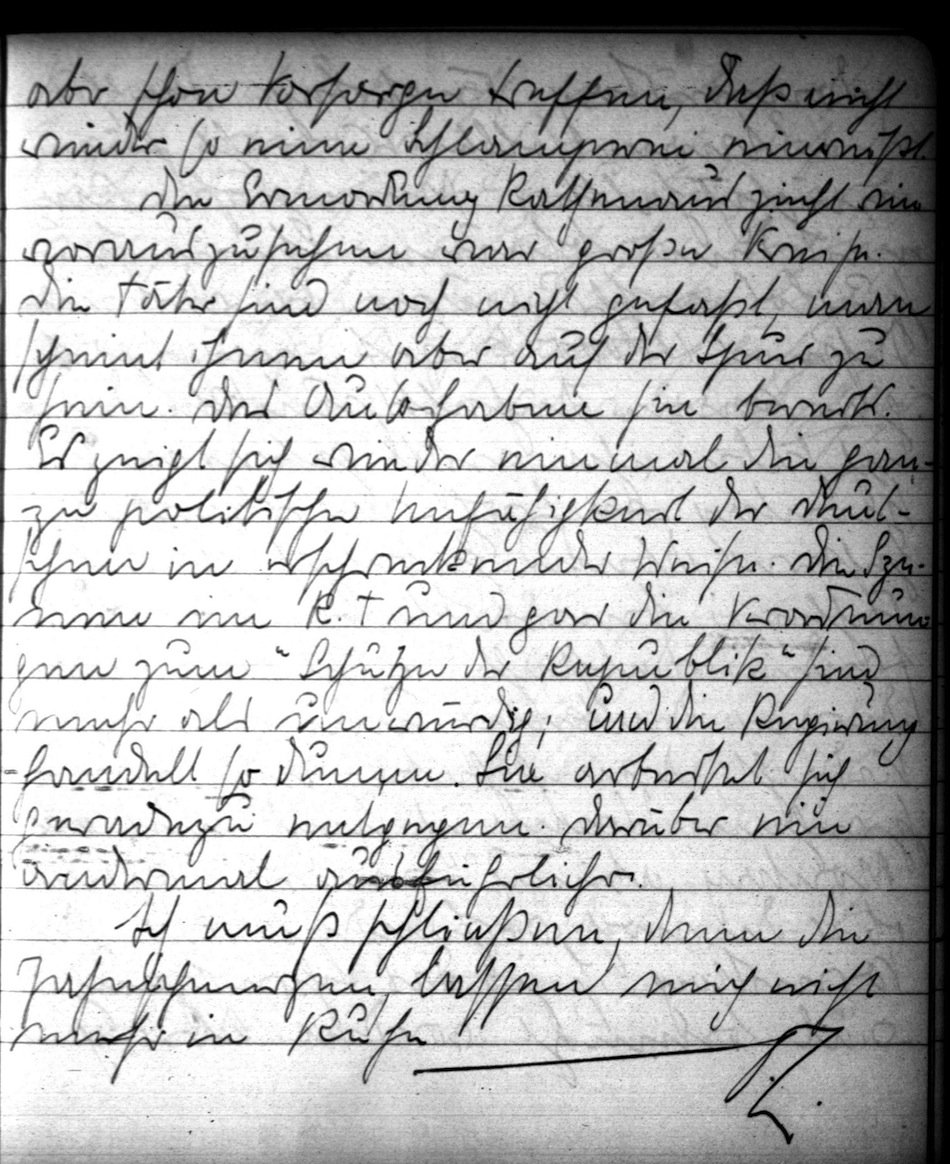 aber schon Vorsorge treffen, daß nicht
wieder so eine Schlamperei einreißt.
Die Ermordung Rathenaus zieht wie
vorauszusehen war große Kreise.
Die Täter sind noch nicht gefaßt, man
scheint ihnen aber auf der Spur zu
sein. Das Auto haben sie bereits.
Es zeigt sich wieder einmal die gan-
ze politische Unfähigkeit der Deut-
schen in erschreckender Weise. Die Sze-
nen im R.T und gar die Verordnun-
gen zum "Schutze der Republik" sind
mehr als unwürdig; und die Regierung
handelt so dumm. Sie arbeitet sich
geradezu entgegen. Darüber ein
andermal ausführlicher.
Ich muß schließen, denn die
Zahnschmerzen, lassen mich nicht
mehr in Ruhe